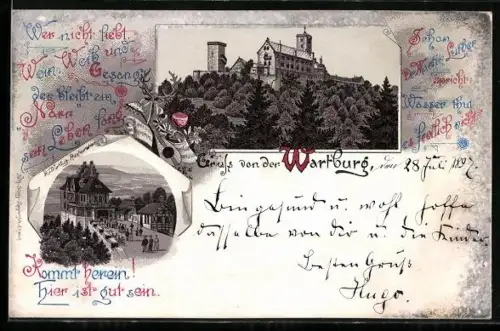 Wer nicht liebt
Wein, Weib und
Gesang
der bleibt ein
Narr
sein Leben lang
Schon
Dr. Martin Luther
spricht:
Wasser thut
es freilich nicht
Gruss von der Wartburg, den 28 Juli 1897
Kommt herein!
Hier ist gut sein.
Bin gesund u. wohl hoffe
dasselbe von dir u. die Kinder
Besten Gruß
Hugo.